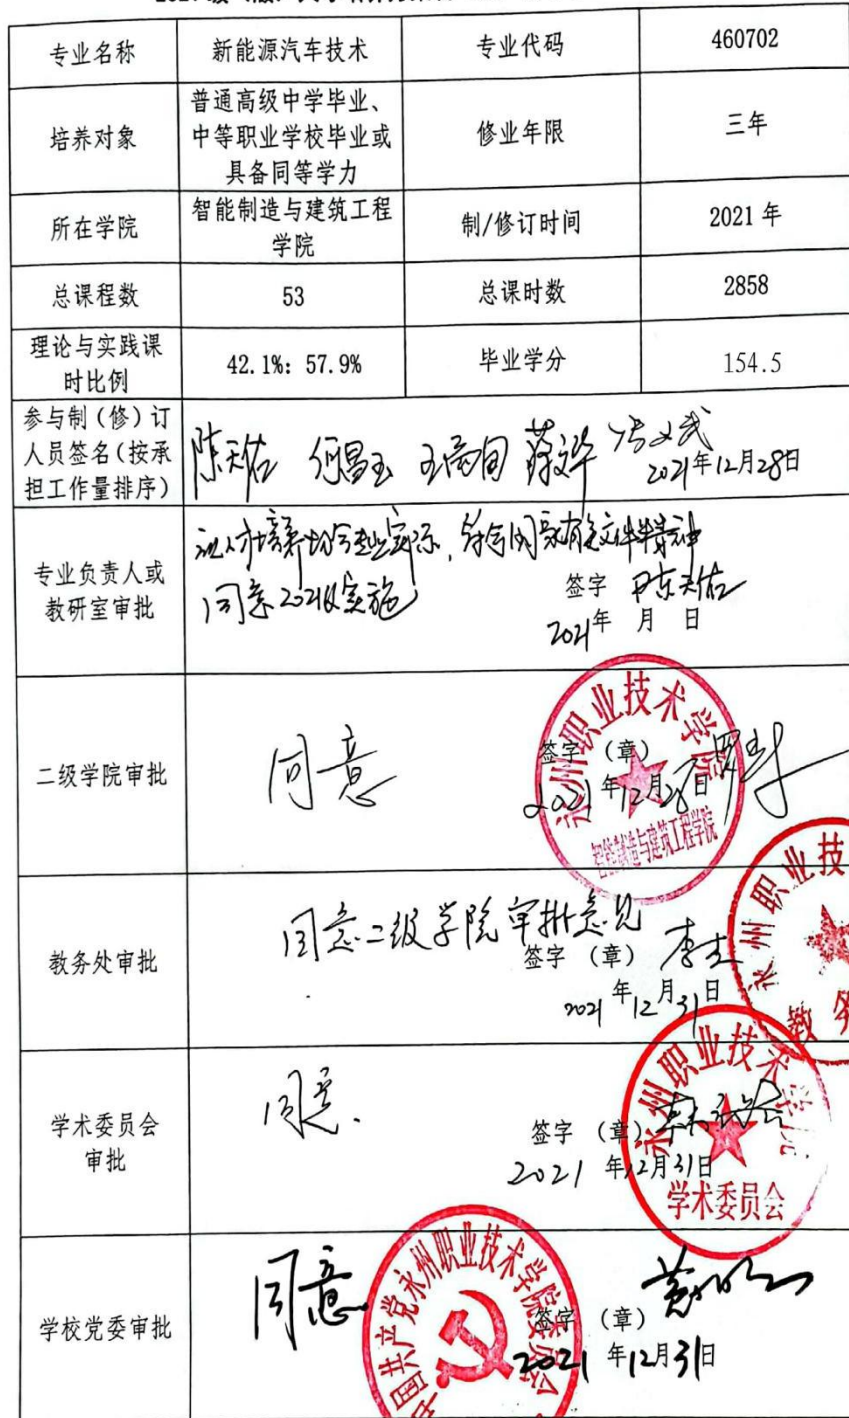 专业名称 新能源汽车技术 专业代码 460702
培养对象 普通高级中学毕业、
中等职业学校毕业或
具备同等学力 修业年限 三年
所在学院 智能制造与建筑工程
学院 制/修订时间 2021 年
总课程数 53 总课时数 2858
理论与实践课
时比例 42.1%: 57.9% 毕业学分 154.5
参与制（修）订
人员签名(按承
担工作量排序)
陈天佑 何昌玉
2021年12月28日
专业负责人或
教研室审批
人才培养 专业实际，符合国家有关文件精神
同意2021级实施
签字 陈天佑
2021年 月 日
二级学院审批
同意
签字 （章）
2021年12月28日
永州职业技术学院
智能制造与建筑工程学院
教务处审批
同意二级学院审批意见
签字 （章）
2021年12月31日
永州职业技
教务
学术委员会
审批
同意.
签字 （章）
2021年12月31日
永州职业技术学院
学术委员会
学校党委审批
同意
签字 （章）
2021年12月31日
中国共产党永州职业技术学院委员会